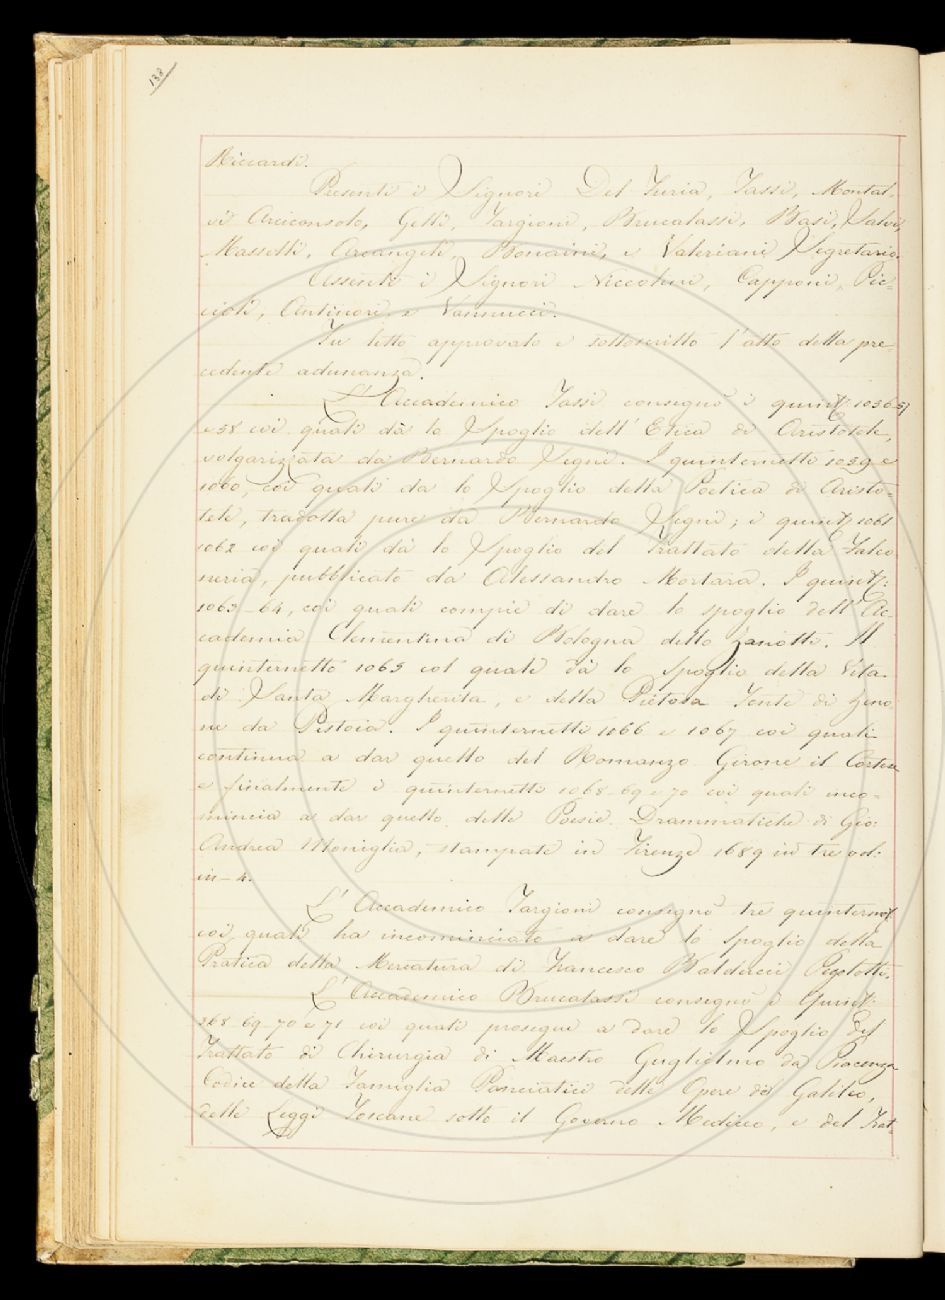 138
Riccardi.
Presenti i Signori Del Furia, Tassi, Montal-
vi Arciconsolo, Gelli, Targioni, Brucalassi, Basi, Salvi,
Masselli, Arcangeli, Bonaini, e Valeriani Segretario.
Assenti i Signori Niccolini, Capponi, Pic-
cioli, Antinori, e Vannucci.
Fu letto approvato e sottoscritto l'atto della pre-
cedente adunanza.
L'Accademico Tassi consegnò i quint. 1056-57
e 58 coi quali dà lo Spoglio dell'Etica di Aristotele,
volgarizzata da Bernardo Segni. I quinternetti 1059 e
1060, coi quali da lo Spoglio della Poetica di Aristo-
tele, tradotta pure da Bernardo Segni; i quint. 1061
1062 coi quali dà lo Spoglio del Trattato della Falco
neria, pubblicato da Alessandro Mortara. I quint.:
1063-64, coi quali compie di dare lo spoglio dell'Ac-
cademia Clementina di Bologna dello Zanotti. Il
quinternetto 1065 col quale dà lo Spoglio della Vita
di Santa Margherita, e della Pietosa Fonte di Zeno
ne da Pistoia. I quinternetti 1066 e 1067 coi quali
continua a dar quello del Romanzo Girone il Cortese
e finalmente i quinternetti 1068-69 e 70 coi quali inco-
mincia a dar quello delle Poesie Drammatiche di Gio:
Andrea Moniglia, stampate in Firenze 1689 in tre vol:
in-4.
L'Accademico Targioni consegnò tre quinternet.
coi quali ha incominciato a dare lo Spoglio della
Pratica della Mercatura di Francesco Balducci Pegolotti.
L'Accademico Brucalassi consegnò i Quint.
368-69-70 e 71 coi quali prosegue a dare lo Spoglio del
Trattato di Chirurgia di Maestro Guglielmo da Piacenza
Codice della Famiglia Panciatici delle Opere del Galileo,
delle Leggi Toscane sotto il Governo Mediceo, e del Trat-